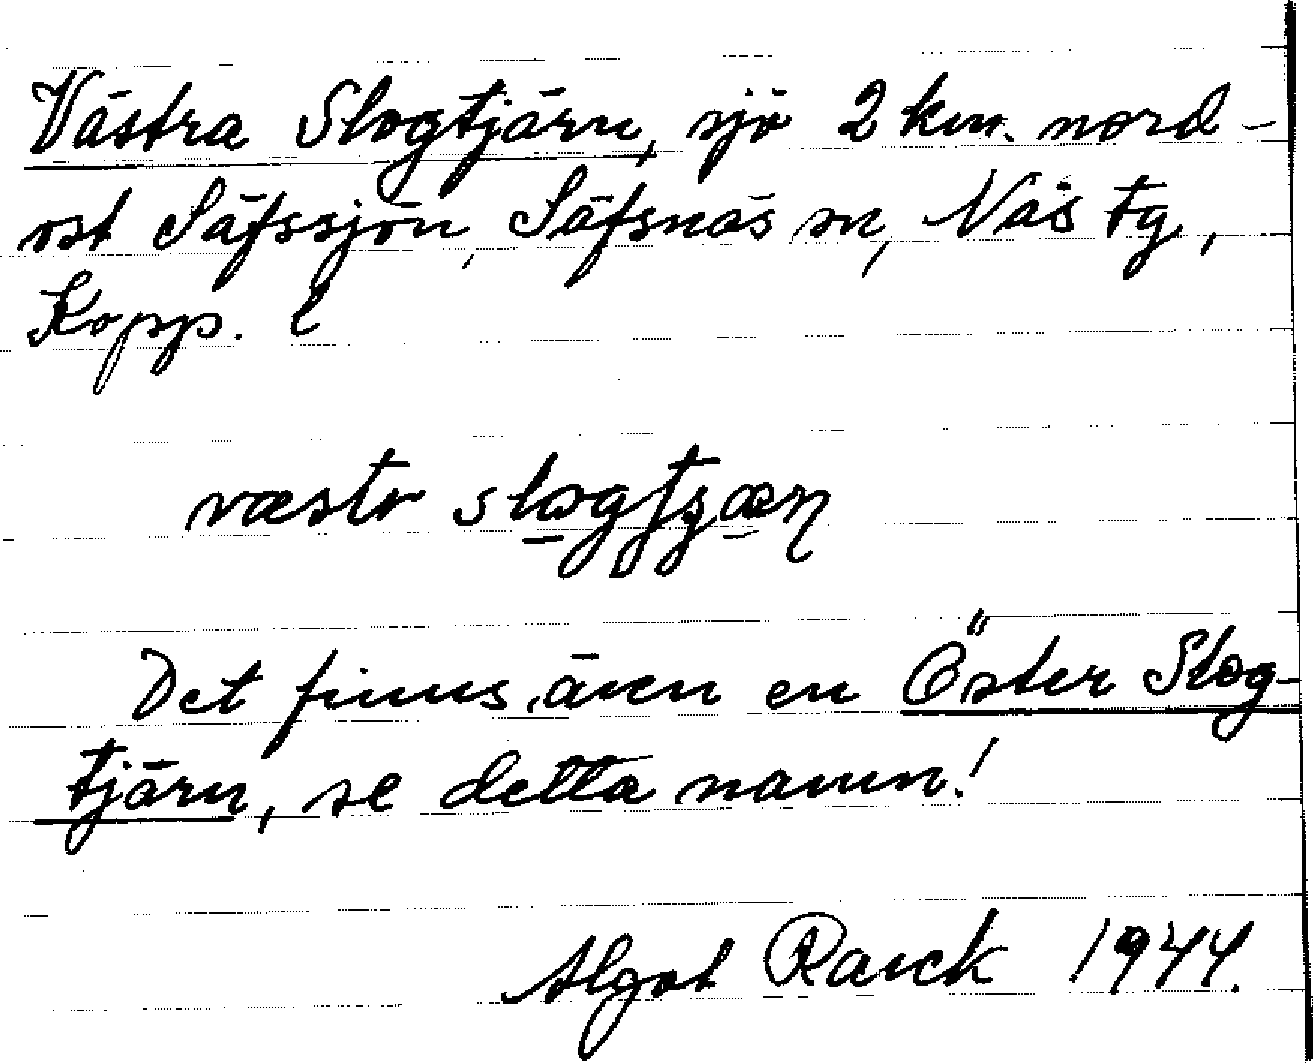 Västra Slogtjärn, sjö 2 km. nord-
ost Säfssjön, Säfsnäs sn, Näs tg,
Kopp. l
Det finns även en Öster Slog-
tjärn, se detta namn!
Algot 1944.